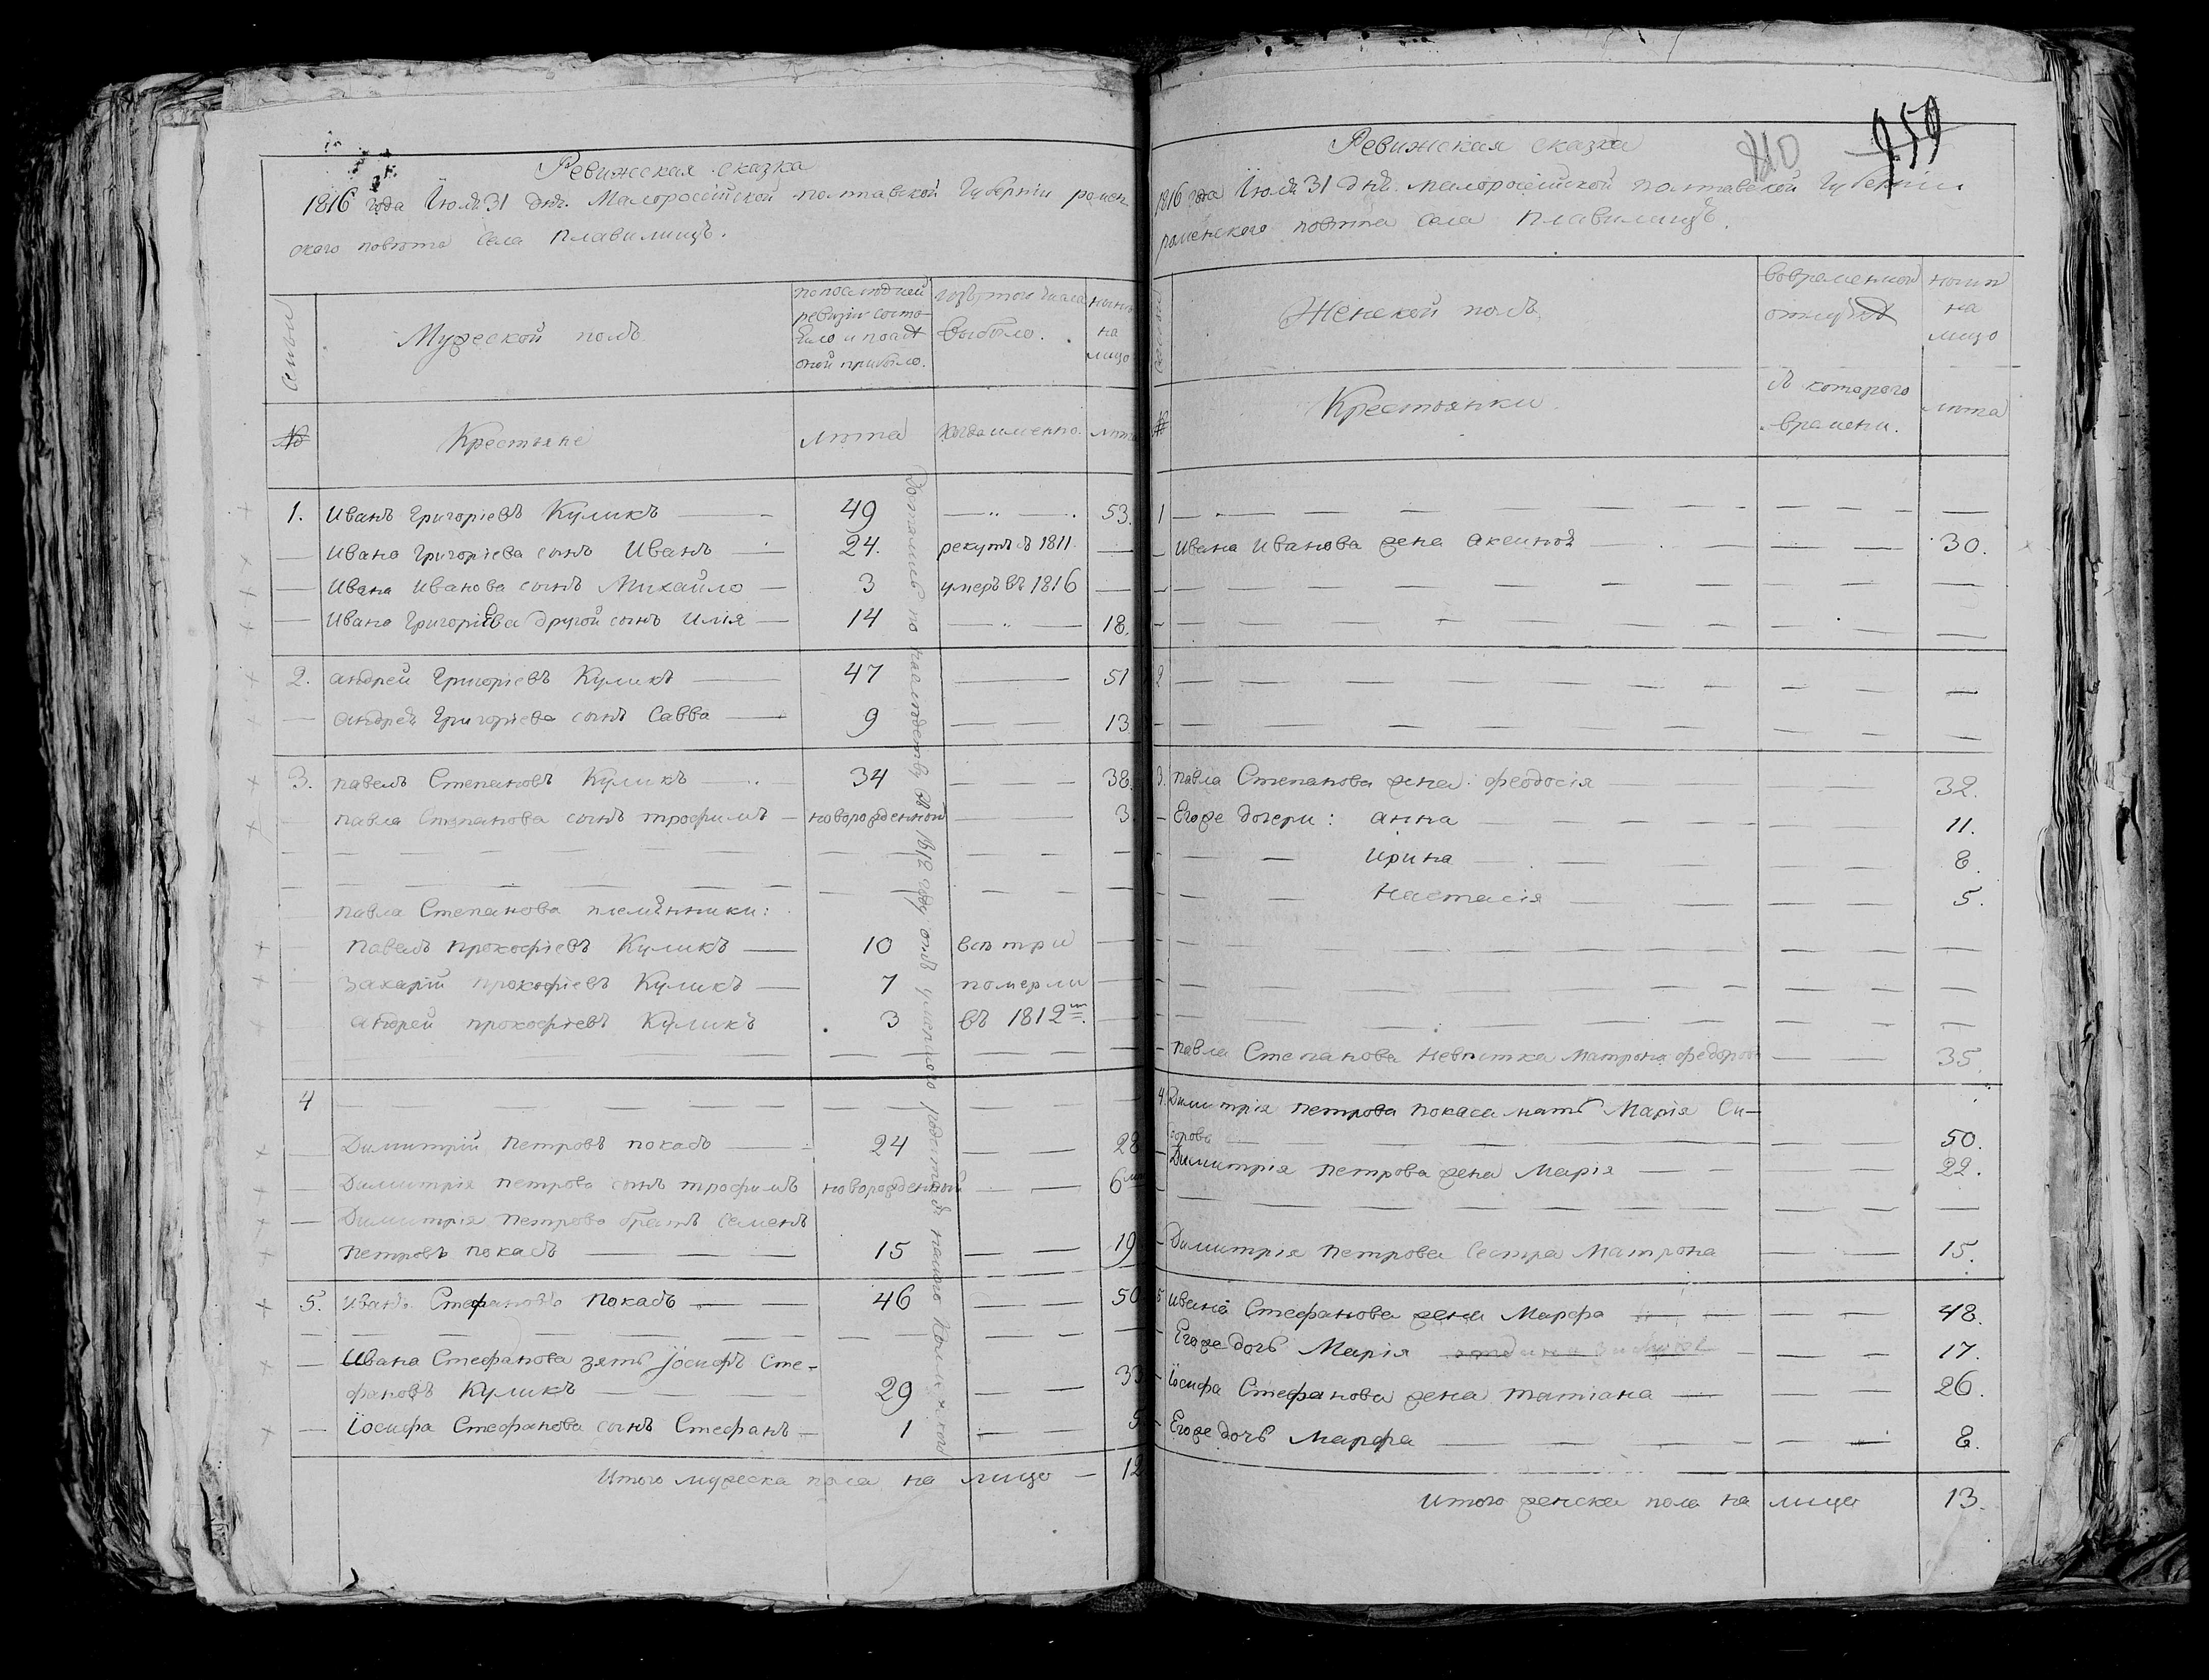 Ревижская сказка
1816 года Іюля 31 дня. Малоросѣійской полтавской Губерніи ромен
ского повѣта Села Плавилищъ.
Семьи
Мужеской полъ
попоследней
ревизіи состо
яло и после
оной прибыло.
изътого числа
выбыло.
нынѣ
на
лицо
№
Крестьяне
лѣта
когда именно.
лѣта
1. Иванъ Григоріевъ Куликъ 49 53.
Ивана Григоріева сынъ Иванъ 24. рекутъ въ 1811
Ивана Иванова сынъ Михайло 3 умеръ въ 1816
Ивана Григоріева другой сынъ Илія 14 18.
2. Андрей Григоріевъ Куликъ 47 51
Андрея Григоріева сынъ Савва 9 13
3. Павелъ Степановъ Куликъ 34 38.
Павла Степанова сынъ Трофимъ новорожденной 3.
Павла Степанова племѣнники:
Павелъ Прокофіевъ Куликъ 10 всѣ три
Захарій Прокофіевъ Куликъ 7 померли
Андрей Прокофіевъ Куликъ 3 въ 1812м.
4
Димитрій Петровъ Покасъ 24 28
Димитрія Петрова сынъ Трофимъ новорожденный 6
Димитрія Петрова братъ Семенъ
Петровъ Покасъ 15 19
5. Иванъ Стефановъ Покасъ 46 50
Ивана Стефанова зять Іосифъ Сте-
фановъ Куликъ 29 33
Іосифа Стефанова сынъ Стефанъ 1 5
Итого мужеска пола на лицо 12
Достались по наследству въ 1812 году отъ умершаго родителя нашего
Ревижская сказка
210
959
1816 года Іюля 31 дня. Малоросѣійской Полтавской Губерніи
роменского повѣта села Плавилищъ.
Семьи
Женской полъ
вовременной
отлучкѣ
нынѣ
на
лицо
№
Крестьянки
съ которого
времени.
лѣта
1
Ивана Иванова жена Аксинія 30.
2
3. Павла Степанова жена Феодосія 32.
Егоже дочери: Анна 11.
Ирина 8.
Настасія 5.
Павла Степанова невѣстка Матрона Федорова 35.
4. Димитрія Петрова Покаса мать Марія Си-
дорова 50.
Димитрія Петрова жена Марія 22.
Димитрія Петрова Сестра Матрона 15.
5 Ивана Стефанова жена Марфа 48.
Егоже дочь Марія 17.
Іосифа Стефанова жена Татіана 26.
Егоже дочь Марфа 8.
Итого женска пола на лицо 13.